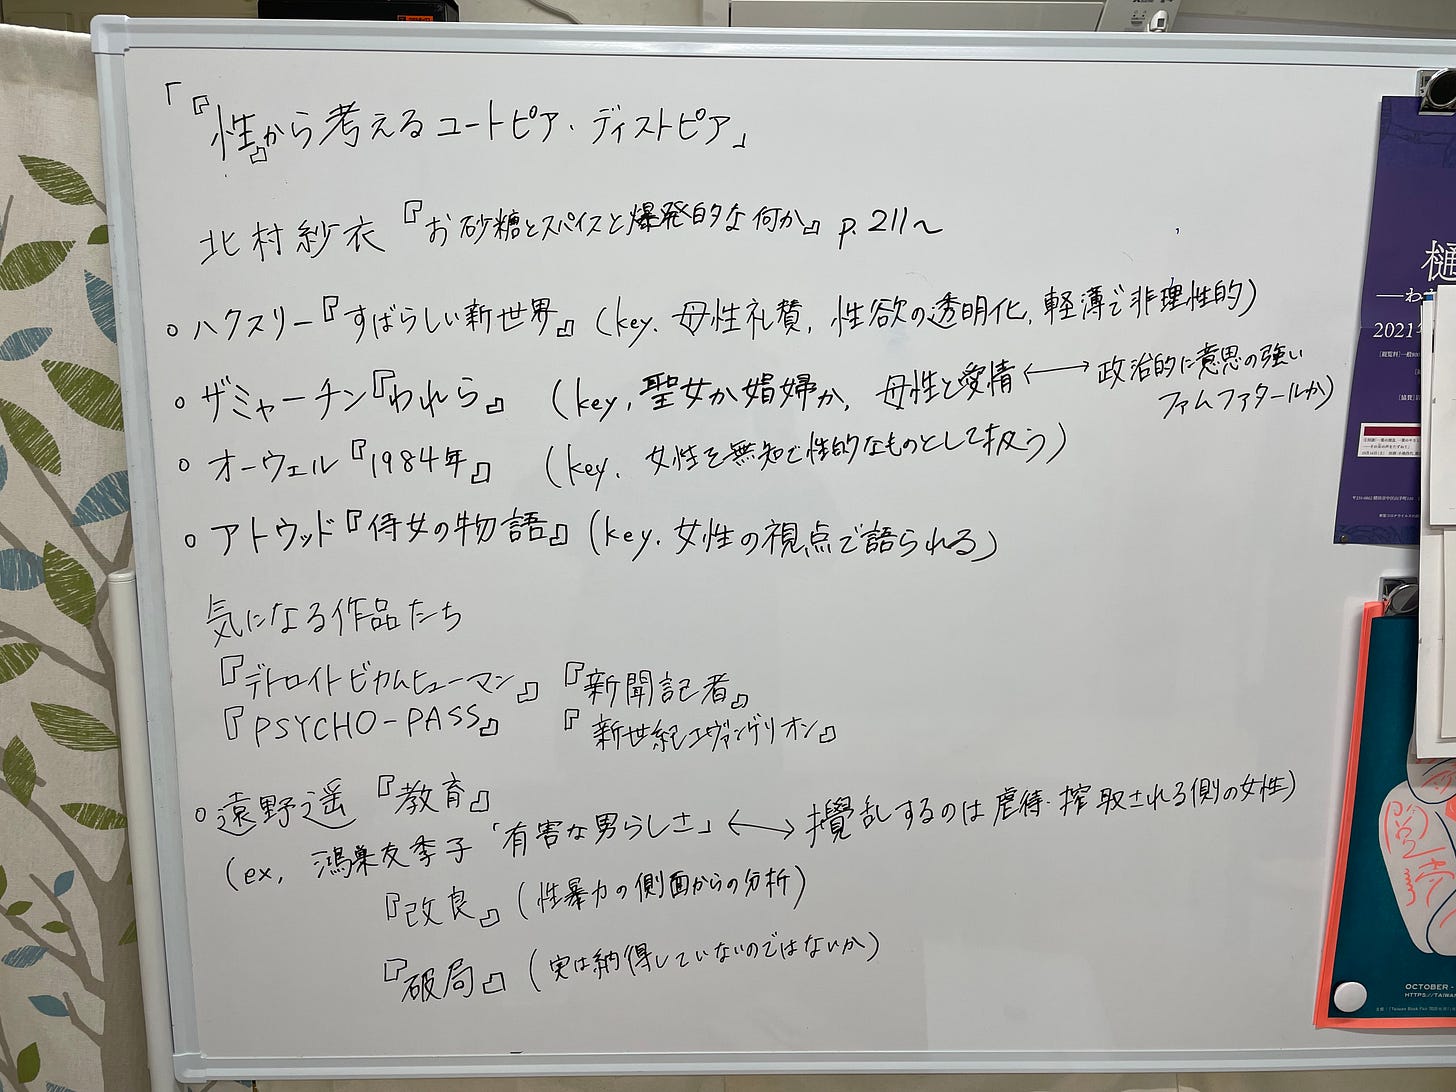 「『性』から考えるユートピア・ディストピア」
北村紗衣『お砂糖とスパイスと爆発的な何か』p.211〜
○ハクスリー『すばらしい新世界』(key. 母性礼賛, 性欲の透明化, 軽薄で非理性的)
○ザミャーチン『われら』(key, 聖女か娼婦か, 母性と愛情⟷政治的に意思の強い
ファムファタールか)
○オーウェル『1984年』(key. 女性を無知で性的なものとして扱う)
○アトウッド『侍女の物語』(key. 女性の視点で語られる)
気になる作品たち
『デトロイトビカムヒューマン』『新聞記者』
『PSYCHO-PASS』『新世紀エヴァンゲリオン』
○遠野遥『教育』
(ex, 鴻巣友季子「有害な男らしさ」⟷攪乱するのは虐待・搾取される側の女性)
『改良』(性暴力の側面からの分析)
『破局』(実は納得していないのではないか)
樋
2021
OCTOBER -
HTTPS://TAIWA